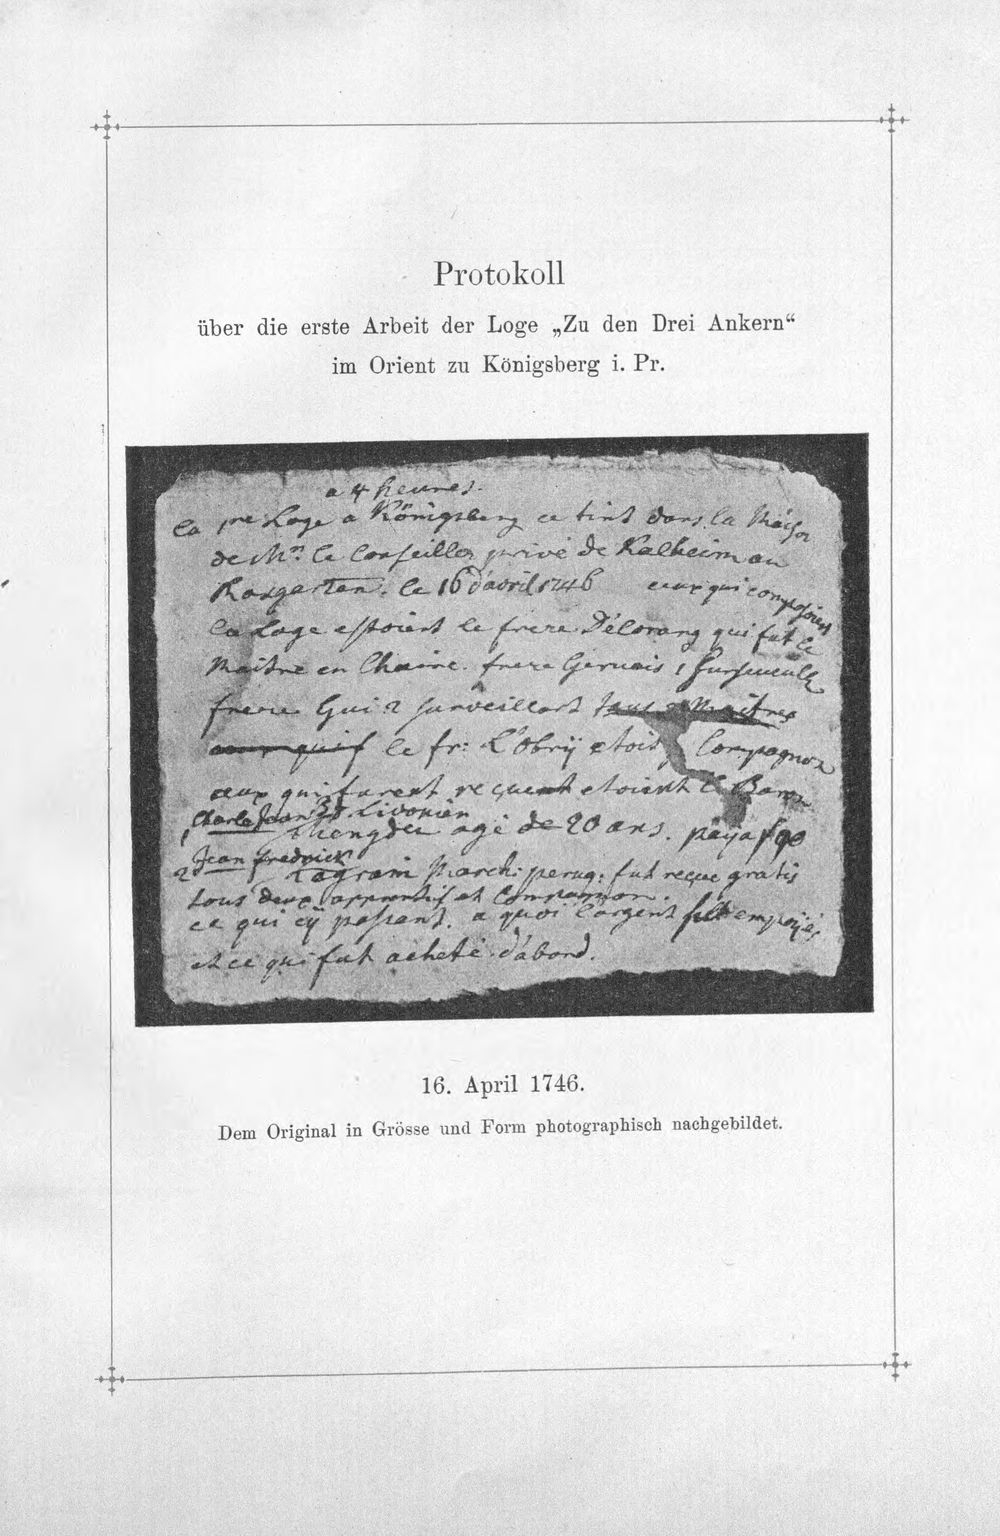 Protokoll
über die erste Arbeit der Loge „Zu den Drei Ankern“
im Orient zu Königsberg i. Pr.
a 4 heures.
la 1re Loge a Königsberg ce tint dans la Maison
de Mr. le Conseiller privé de Kalheim au
Rosgarten. le 16 d'avril 1746 ceux qui composoient
la Loge estoient le frere Délorang qui fut le
Maitre en Chaire. frere Gervais 1 surveill
frere Gui 2 surveillant Maitres
le fr: L'Obrÿ etoit Compagnon
ceux qui furent recuent etoient le Baron
1 Charle Jean Livonien
agé de 20 ans. paÿa
2 Jean fredrick
Lagrain March: peruq: fut reçue gratis
tous deux apprentif et Compagnon.
ce qui cÿ passant. a quoi l'argent fut empoÿés
et ce qui fut acheté d'abord.
16. April 1746.
Dem Original in Grösse und Form photographisch nachgebildet.